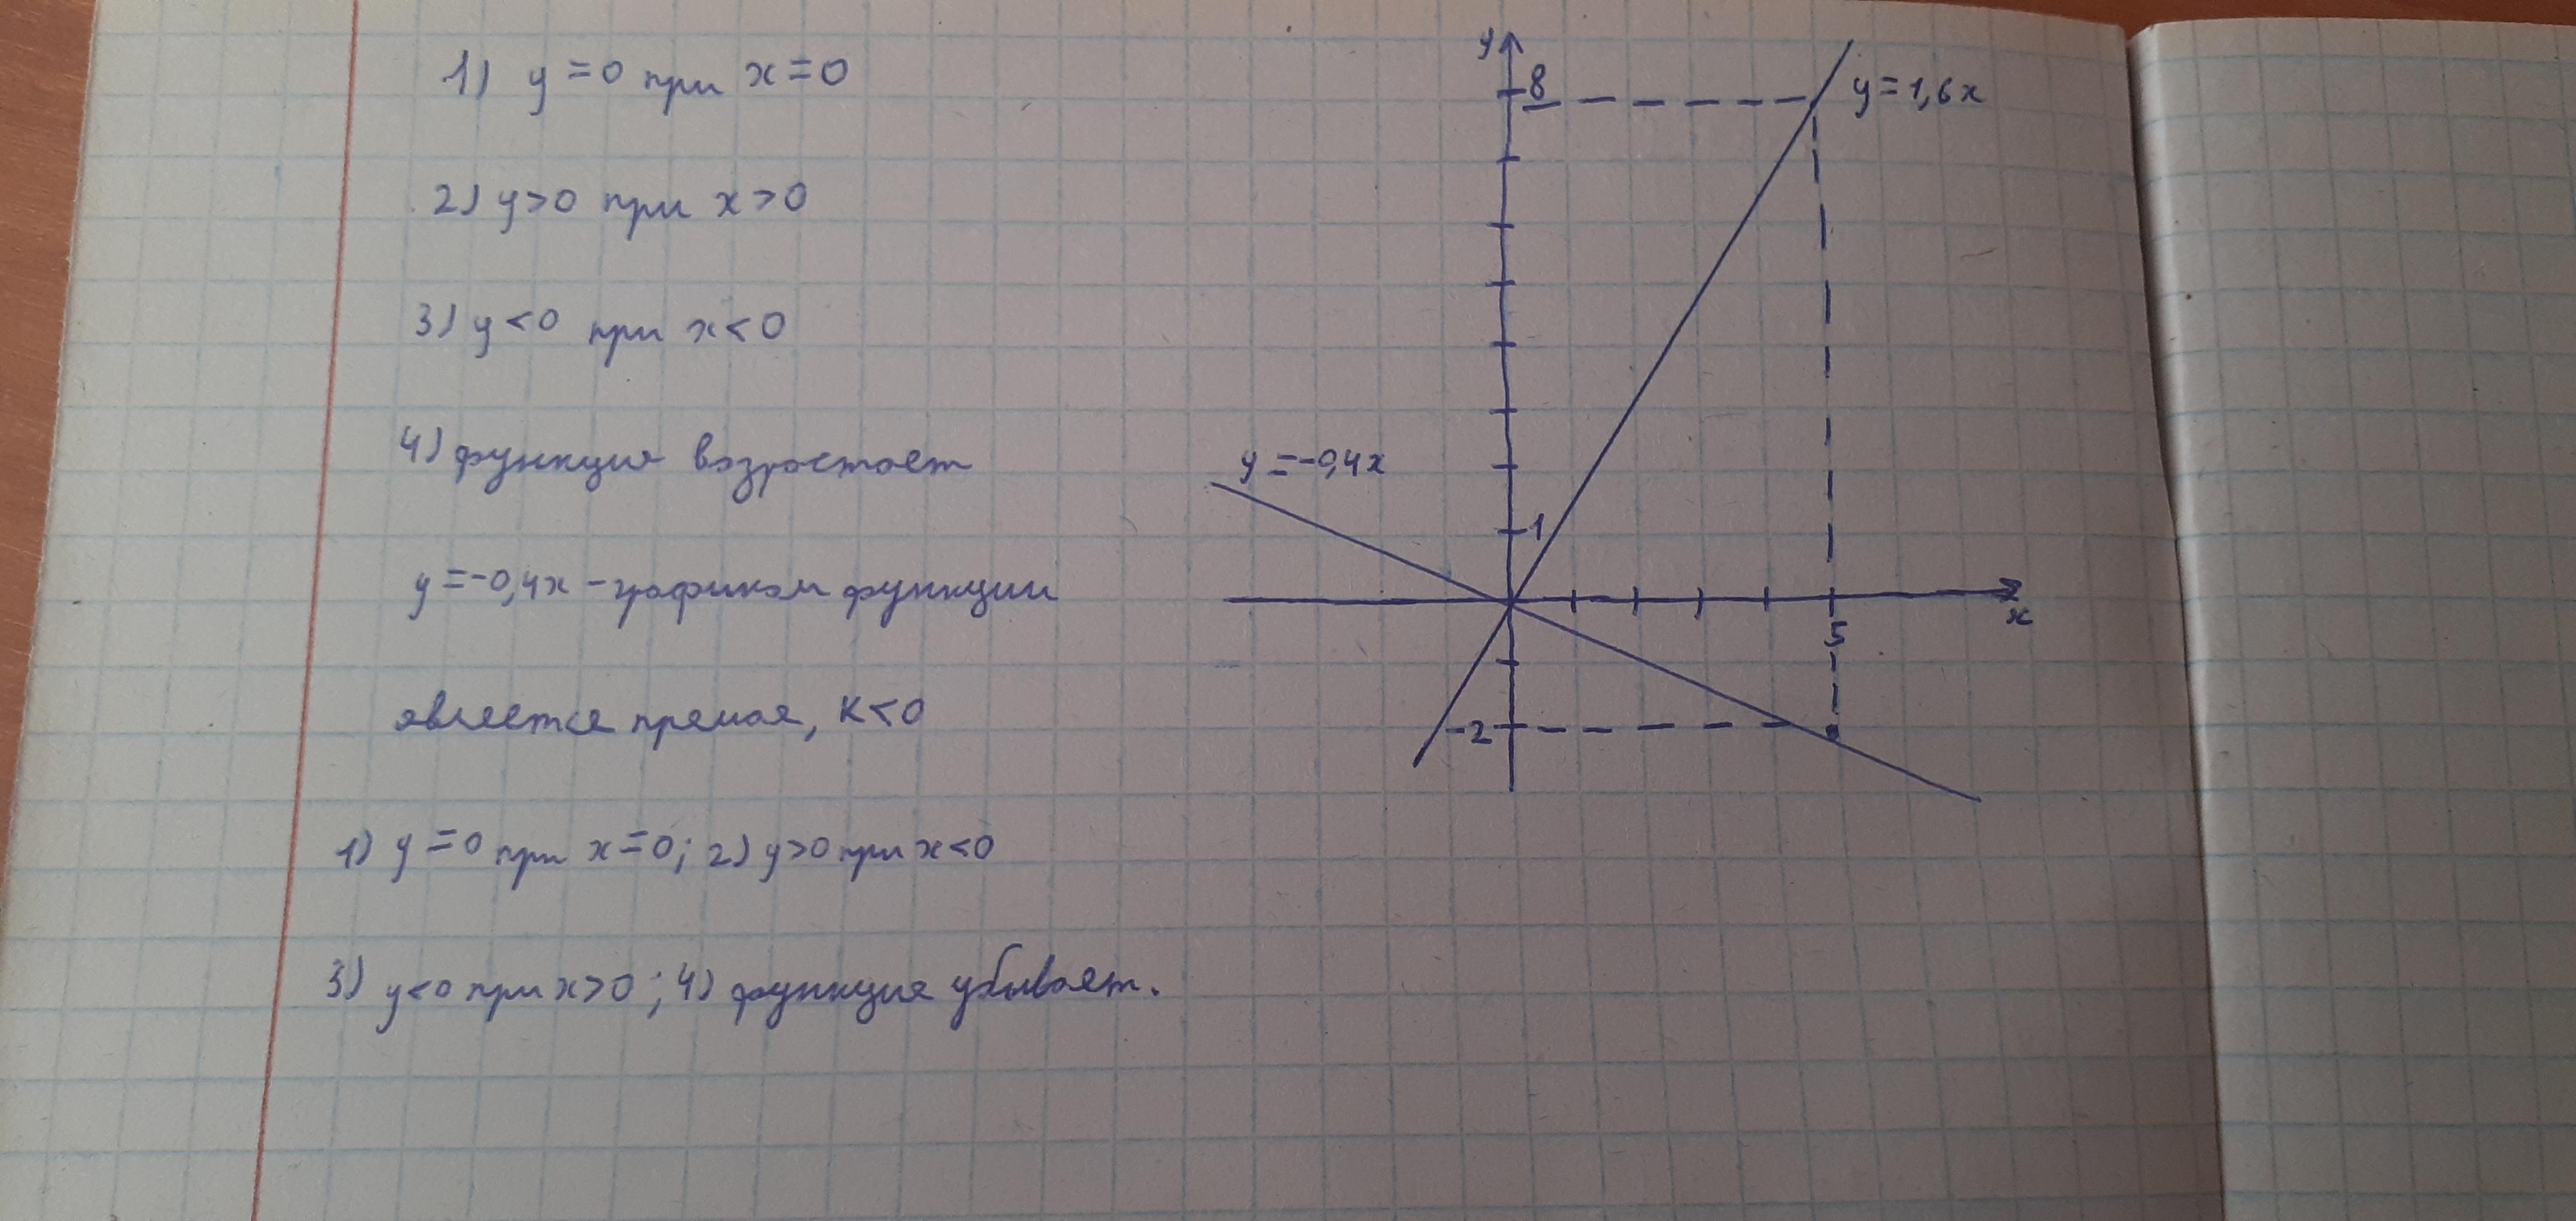 1) y = 0 при x = 0
2) y > 0 при x > 0
3) y < 0 при x < 0
4) функция возрастает
y = -0,4x - графиком функции
является прямая, K < 0
1) y = 0 при x = 0; 2) y > 0 при x < 0
3) y < 0 при x > 0; 4) функция убывает.
y
8
y = 1,6x
y = -0,4x
1
x
5
-2